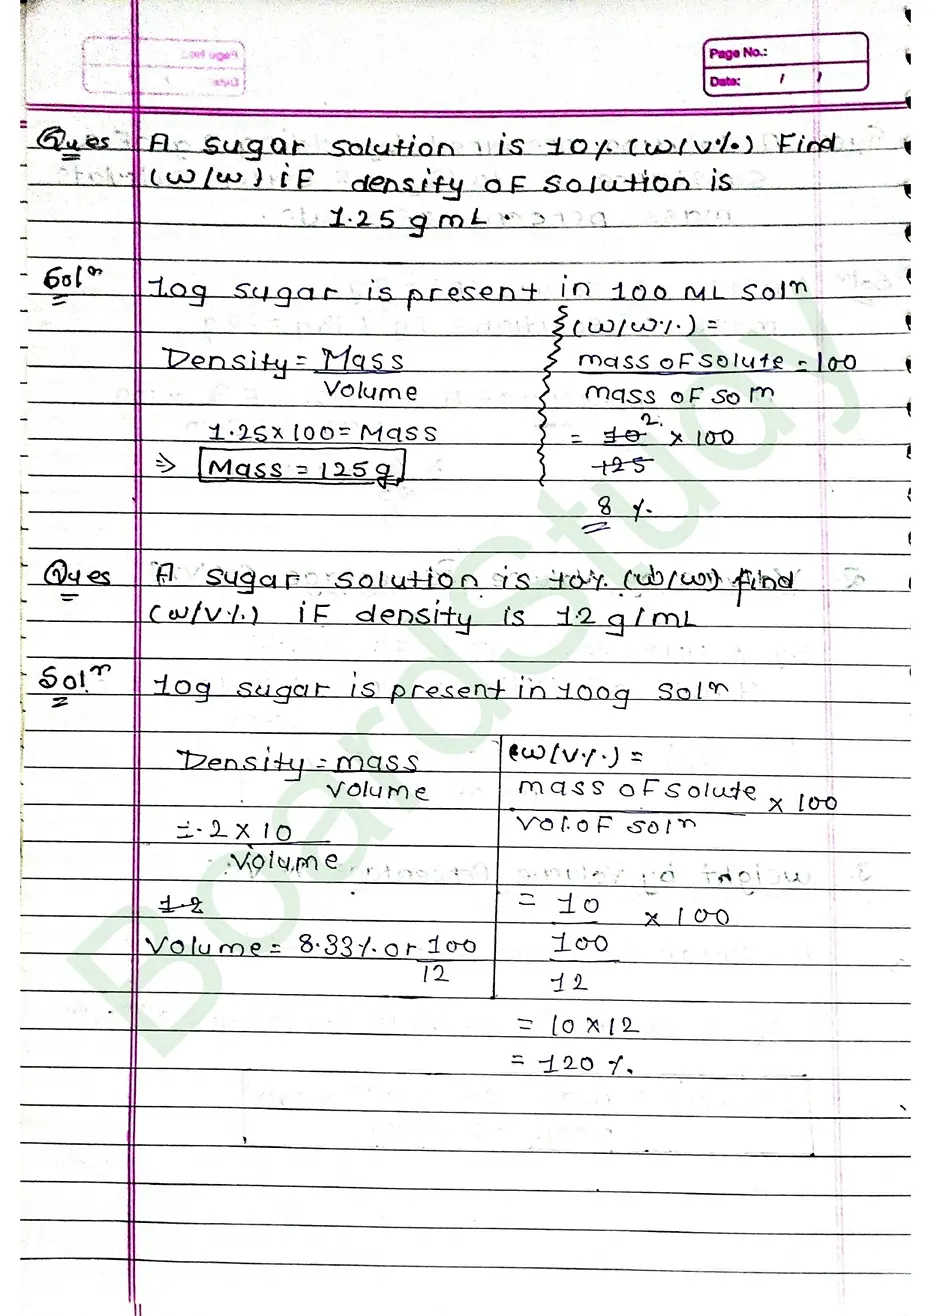 Page No.:
Date: / /
Ques A sugar solution is 10% (w/v%) Find
(w/w) iF density oF solution is
1.25 g mL.
Solⁿ 10g sugar is present in 100 ML solⁿ
(w/w%) =
Density = Mass
Volume
mass oF solute = 100
mass oF solⁿ
1.25 × 100 = Mass
⇒ Mass = 125g
= 10 2 × 100
125
8 %
Ques A sugar solution is 10% (w/w) find
(w/v%) iF density is 1.2 g/mL
Solⁿ 10g sugar is present in 100g Solⁿ
Density = mass
Volume
1.2 × 10
Volume
1.2
Volume = 8.33% or 100
12
(w/v%) =
mass oF solute × 100
Vol. oF solⁿ
= 10 × 100
100
12
= 10 × 12
= 120 %.
BoardStudy